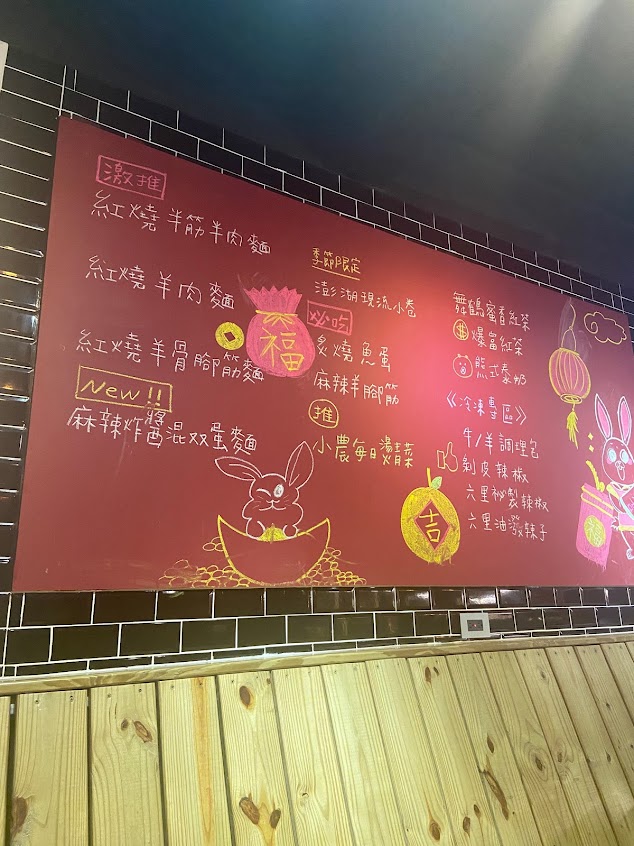 激推
紅燒半筋半肉麵
紅燒羊肉麵
紅燒羊骨腳筋麵
New!!
麻辣炸醬混双蛋麵
福
季節限定
澎湖現流小卷
必吃
炙燒魚蛋
麻辣羊腳筋
推
小農每日燙青菜
吉
舞鶴蜜香紅茶
$爆富紅茶
熊式泰奶
《冷凍專區》
牛/羊調理包
剝皮辣椒
六里祕製辣椒
六里油潑辣子